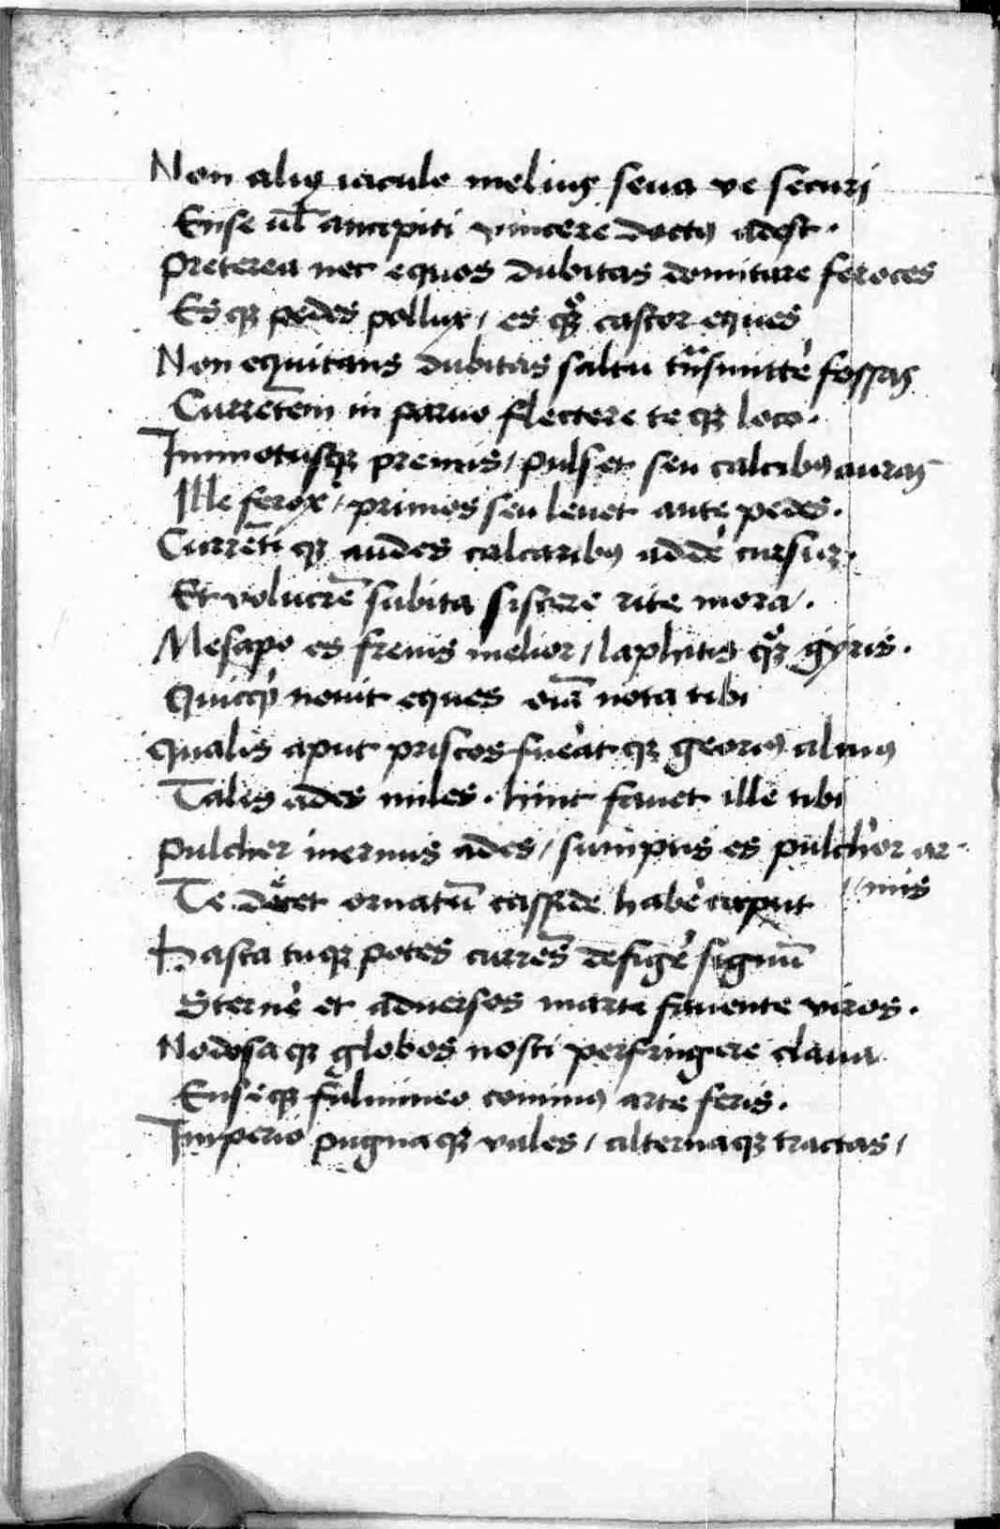 Non aliꝰ iaculo meliuꝰ seua ve securi
Ense ul̄ ancipiti vincere doctꝰ adest.
Preterea nec equos dubitas domitare feroces
Es qꝫ pedes pollux / es qꝫ castor eques
Non equitans dubitas saltu trāsmitte᷑ fossas
Curretē in paruo flectere te qꝫ loco.
Immotusqꝫ premis / pulset seu calcibꝰ auras
Ille ferox / primos seu leuet ante pedes.
Currēti qꝫ audes calcaribꝰ adde᷑ cursuꝫ.
Et volucrē subita sistere rite mora.
Mesapo es frenis melior / laphitis qꝫ gyris.
Quicqͥd nouit eques oīa nota tibi
Qualis aput priscos fue᷑at qꝫ georiꝰ almꝰ
Talis ades miles. hinc fauet ille tibi
Pulcher inermis ades / sumptis es pulch᷑or ar-
Te decet ornatū casside habe᷑ caput //mis
Hasta tuqꝫ potes currēs defige᷑ signū
Sterne᷑ et aduersos marte fauente viros.
Nodosa qꝫ globos nosti perfringere claua
Ense qꝫ fulmineo cominꝰ arte feris.
Imperio pugnaqꝫ vales / alternaqꝫ tractas /